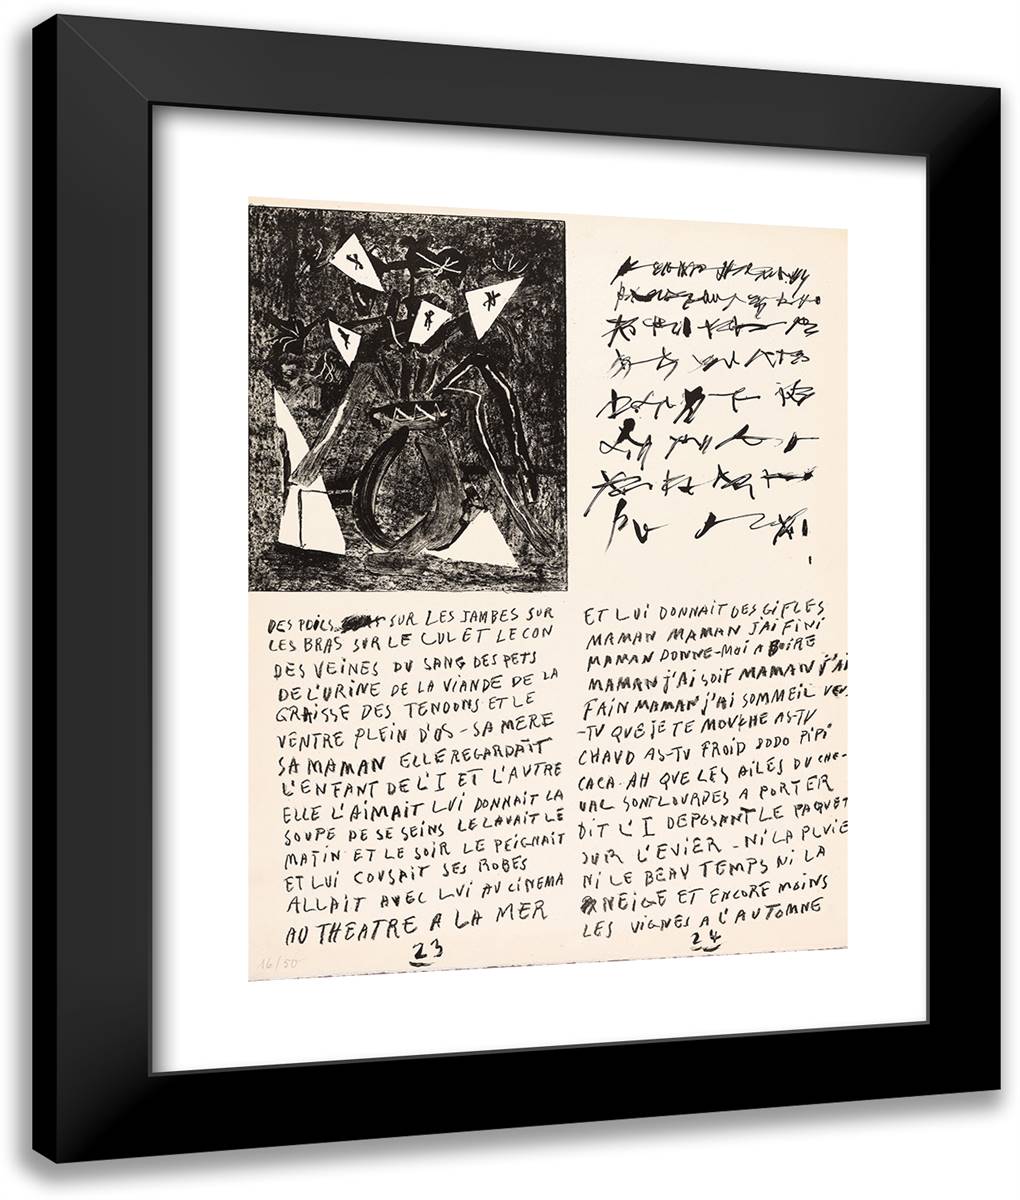 DES POILS SUR LES JAMBES SUR
LES BRAS SUR LE CUL ET LE CON
DES VEINES DU SANG DES PETS
DE L'URINE DE LA VIANDE DE LA
GRAISSE DES TENDONS ET LE
VENTRE PLEIN D'OS - SA MERE
SA MAMAN ELLE REGARDAIT
L'ENFANT DE L'I ET L'AUTRE
ELLE L'AIMAIT LUI DONNAIT LA
SOUPE DE SE SEINS LE LAVAIT LE
MATIN ET LE SOIR LE PEIGNAIT
ET LUI COUSAIT SES ROBES
ALLAIT AVEC LUI AU CINEMA
AU THEATRE A LA MER
23
16/50
ET LUI DONNAIT DES GIFLES
MAMAN MAMAN J'AI FINI
MAMAN DONNE-MOI A BOIRE
MAMAN J'AI SOIF MAMAN J'AI
FAIN MAMAN J'AI SOMMEIL VEU
-TU QUE JE TE MOUCHE AS-TU
CHAUD AS-TU FROID DODO PIPI
CACA. AH QUE LES AILES DU CHE-
VAL SONT LOURDES A PORTER
DIT L'I DEPOSANT LE PAQUET
SUR L'EVIER - NI LA PLUIE
NI LE BEAU TEMPS NI LA
NEIGE ET ENCORE MOINS
LES VIGNES A L'AUTOMNE
24